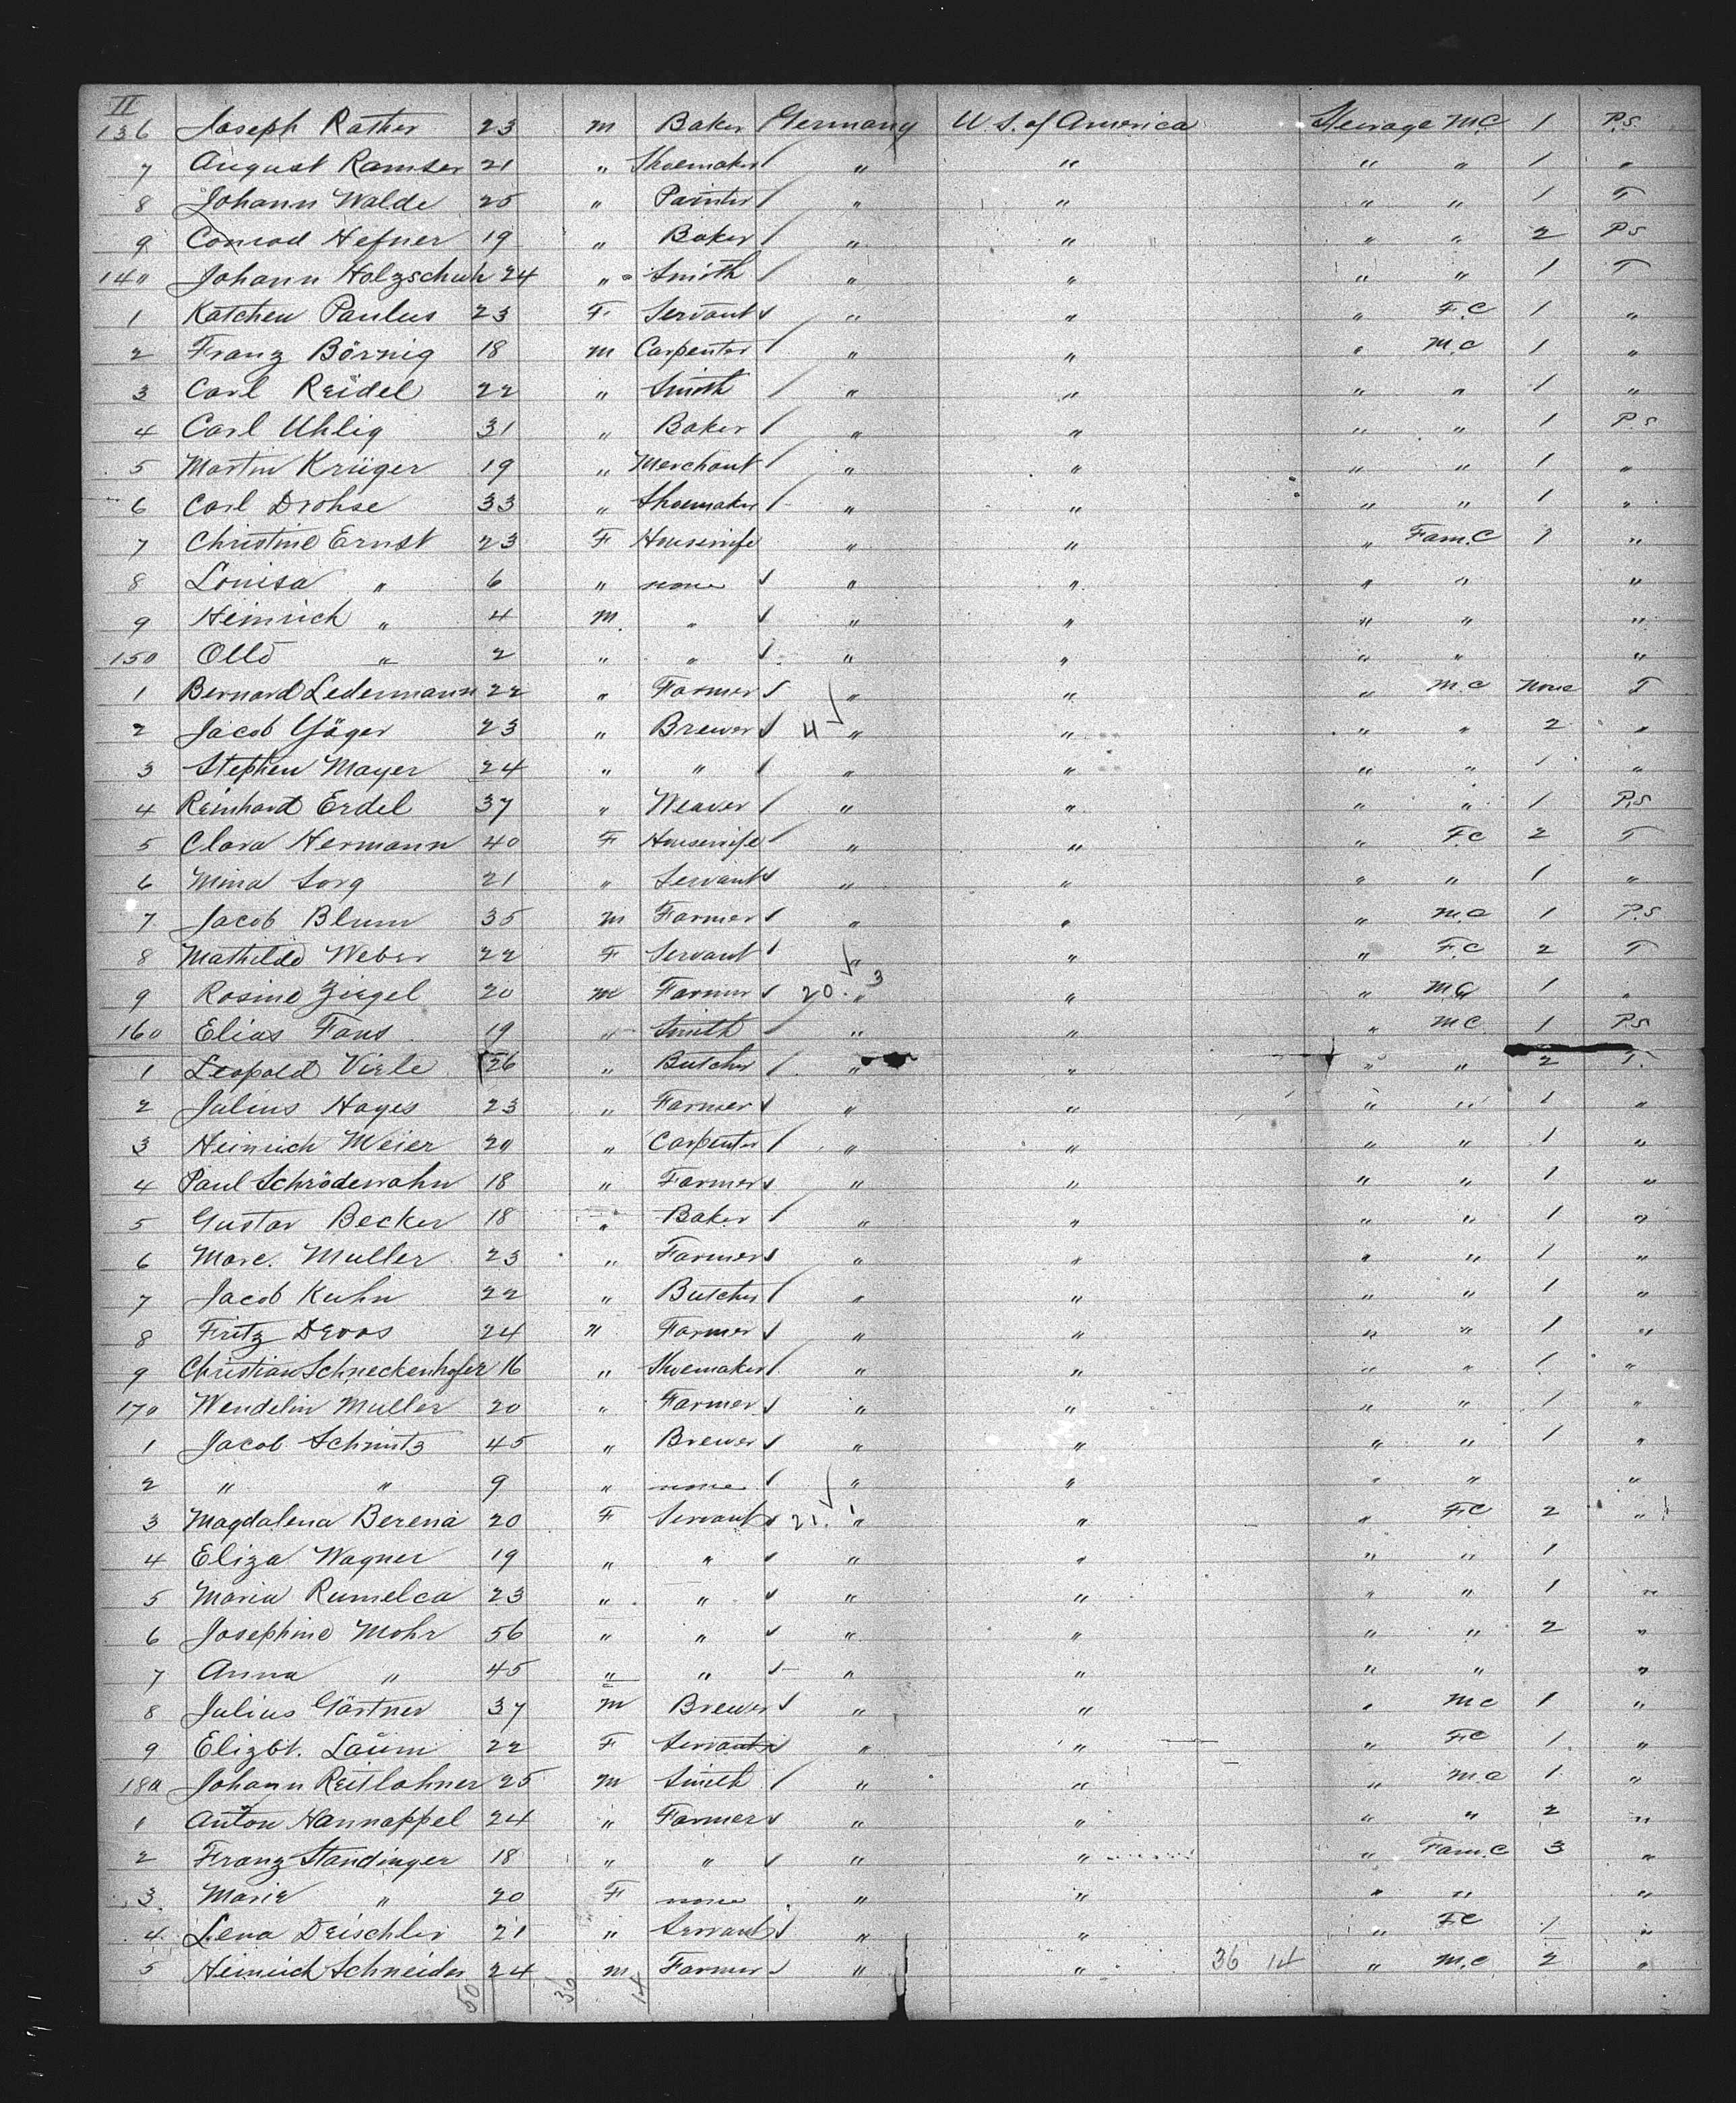 II
136 Joseph Rather 23 m Baker Germany U S. of America Steerage M.C 1 P.S.
7 August Ramser 21 " Shoemaker " " " " 1 "
8 Johann Walde 25 " Painter " " " " 1 T
9 Conrad Hefner 19 " Baker " " " " 2 P.S
140 Johann Holzschuh 24 " Smith " " " " 1 T
1 Katchen Paulus 23 F Servant " " " F.C 1 "
2 Franz Börnig 18 m Carpenter " " " M.C 1 "
3 Carl Reidel 22 " Smith " " " " 1 "
4 Carl Uhlig 31 " Baker " " " " 1 P.S
5 Martin Krüger 19 " Merchant " " " " 1 "
6 Carl Drohse 33 " Shoemaker " " " " 1 "
7 Christine Ernst 23 F Housewife " " " Fam.C 1 "
8 Louisa " 6 " none " " " " "
9 Heinrich " 4 m " " " " " "
150 Otto " 2 " " " " " " "
1 Bernard Ledermann 22 " Farmer " " " M.C None T
2 Jacob Jäger 23 " Brewer 4 " " " " 2 "
3 Stephen Mayer 24 " " " " " " 1 "
4 Reinhard Erdel 37 " Weaver " " " " 1 P.S
5 Clara Hermann 40 F Housewife " " " F.C 2 T
6 Mina Sorg 21 " Servant " " " " 1 "
7 Jacob Blum 35 m Farmer " " " M.C 1 P.S
8 Mathilde Weber 22 F Servant " " " F.C 2 T
9 Rosine Ziegel 20 m Farmer 20. 3 " " " M.C 1 "
160 Elias Fans 19 " Smith " " " M.C 1 P.S
1 Leopold Viele 26 " Butcher " " " " 2 T.
2 Julius Hayes 23 " Farmer " " " " 1 "
3 Heinrich Meier 20 " Carpenter " " " " 1 "
4 Paul Schröderwahn 18 " Farmer " " " " 1 "
5 Gustav Becker 18 " Baker " " " " 1 "
6 Marc. Muller 23 " Farmer " " " " 1 "
7 Jacob Kuhn 22 " Butcher " " " " 1 "
8 Fritz Devos 24 " Farmer " " " " 1 "
9 Christian Schneckenhofer 16 " Shoemaker " " " " 1 "
170 Wendelin Muller 20 " Farmer " " " " 1 "
1 Jacob Schmitz 45 " Brewer " " " " 1 "
2 " " 9 " none " " " " "
3 Magdalena Berena 20 F Servant 21. 1 " " " F.C 2 "
4 Eliza Wagner 19 " " " " " " 1
5 Maria Rumelca 23 " " " " " " 1 "
6 Josephine Mohr 56 " " " " " " 2 "
7 Anna " 45 " " " " " " "
8 Julius Gärtner 37 m Brewer " " " M.C 1 "
9 Elizbt. Laüm 22 F Servant " " " F.C 1 "
180 Johann Reitlohner 25 m Smith " " " M.C 1 "
1 Anton Hannappel 24 " Farmer " " " " 2 "
2 Franz Standinger 18 " " " " " Fam.C 3 "
3 Marie " 20 F none " " " " "
4 Lena Deischler 21 " Servant " " " F.C 1 "
5 Heinrich Schneider 24 m Farmer " " 36 14 " M.C 2 "
50 36 14